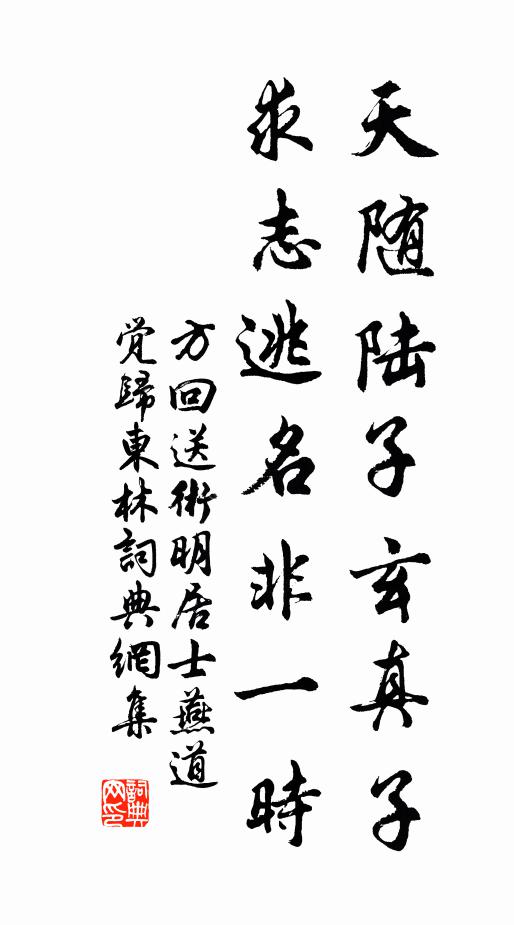 天随陆子玄真子
求志逃名非一時
方回送術明居士燕道
觉歸東林詞典網集
詞典网印